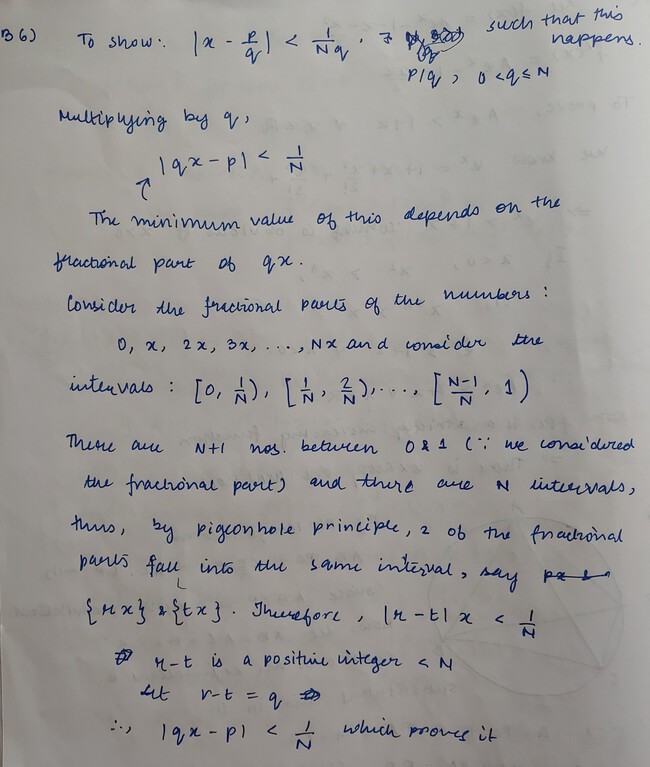 B6) To show: |x - p/q| < 1/Nq . ∃ p/q, 0 < q ≤ N such that this happens.
Multiplying by q,
|qx - p| < 1/N
The minimum value of this depends on the
fractional part of qx.
Consider the fractional parts of the numbers :
0, x, 2x, 3x, ..., Nx and consider the
intervals : [0, 1/N), [1/N, 2/N), ..., [N-1/N, 1)
There are N+1 nos. between 0 & 1 (∵ we considered
the fractional part) and there are N intervals,
thus, by pigeonhole principle, 2 of the fractional
parts fall into the same interval, say
{rx} & {tx}. Therefore, |r - t| x < 1/N
r-t is a positive integer < N
Let r-t = q
∴, |qx - p| < 1/N which proves it